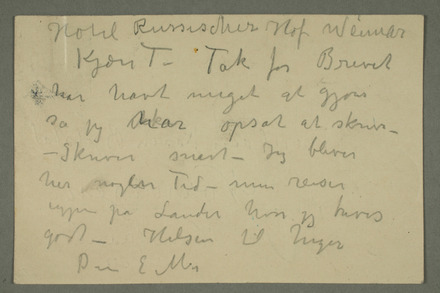 Hotel Russischer Hof Weimar
Kjære T – Tak for Brevet
har havt meget at gjøre
så jeg har opsat at skrive –
– Skriver snart – Jeg bliver
her nogen Tid – men reiser
igjen på Landet hvor jeg trives
godt – Hilsen til Inger
Din E.M.